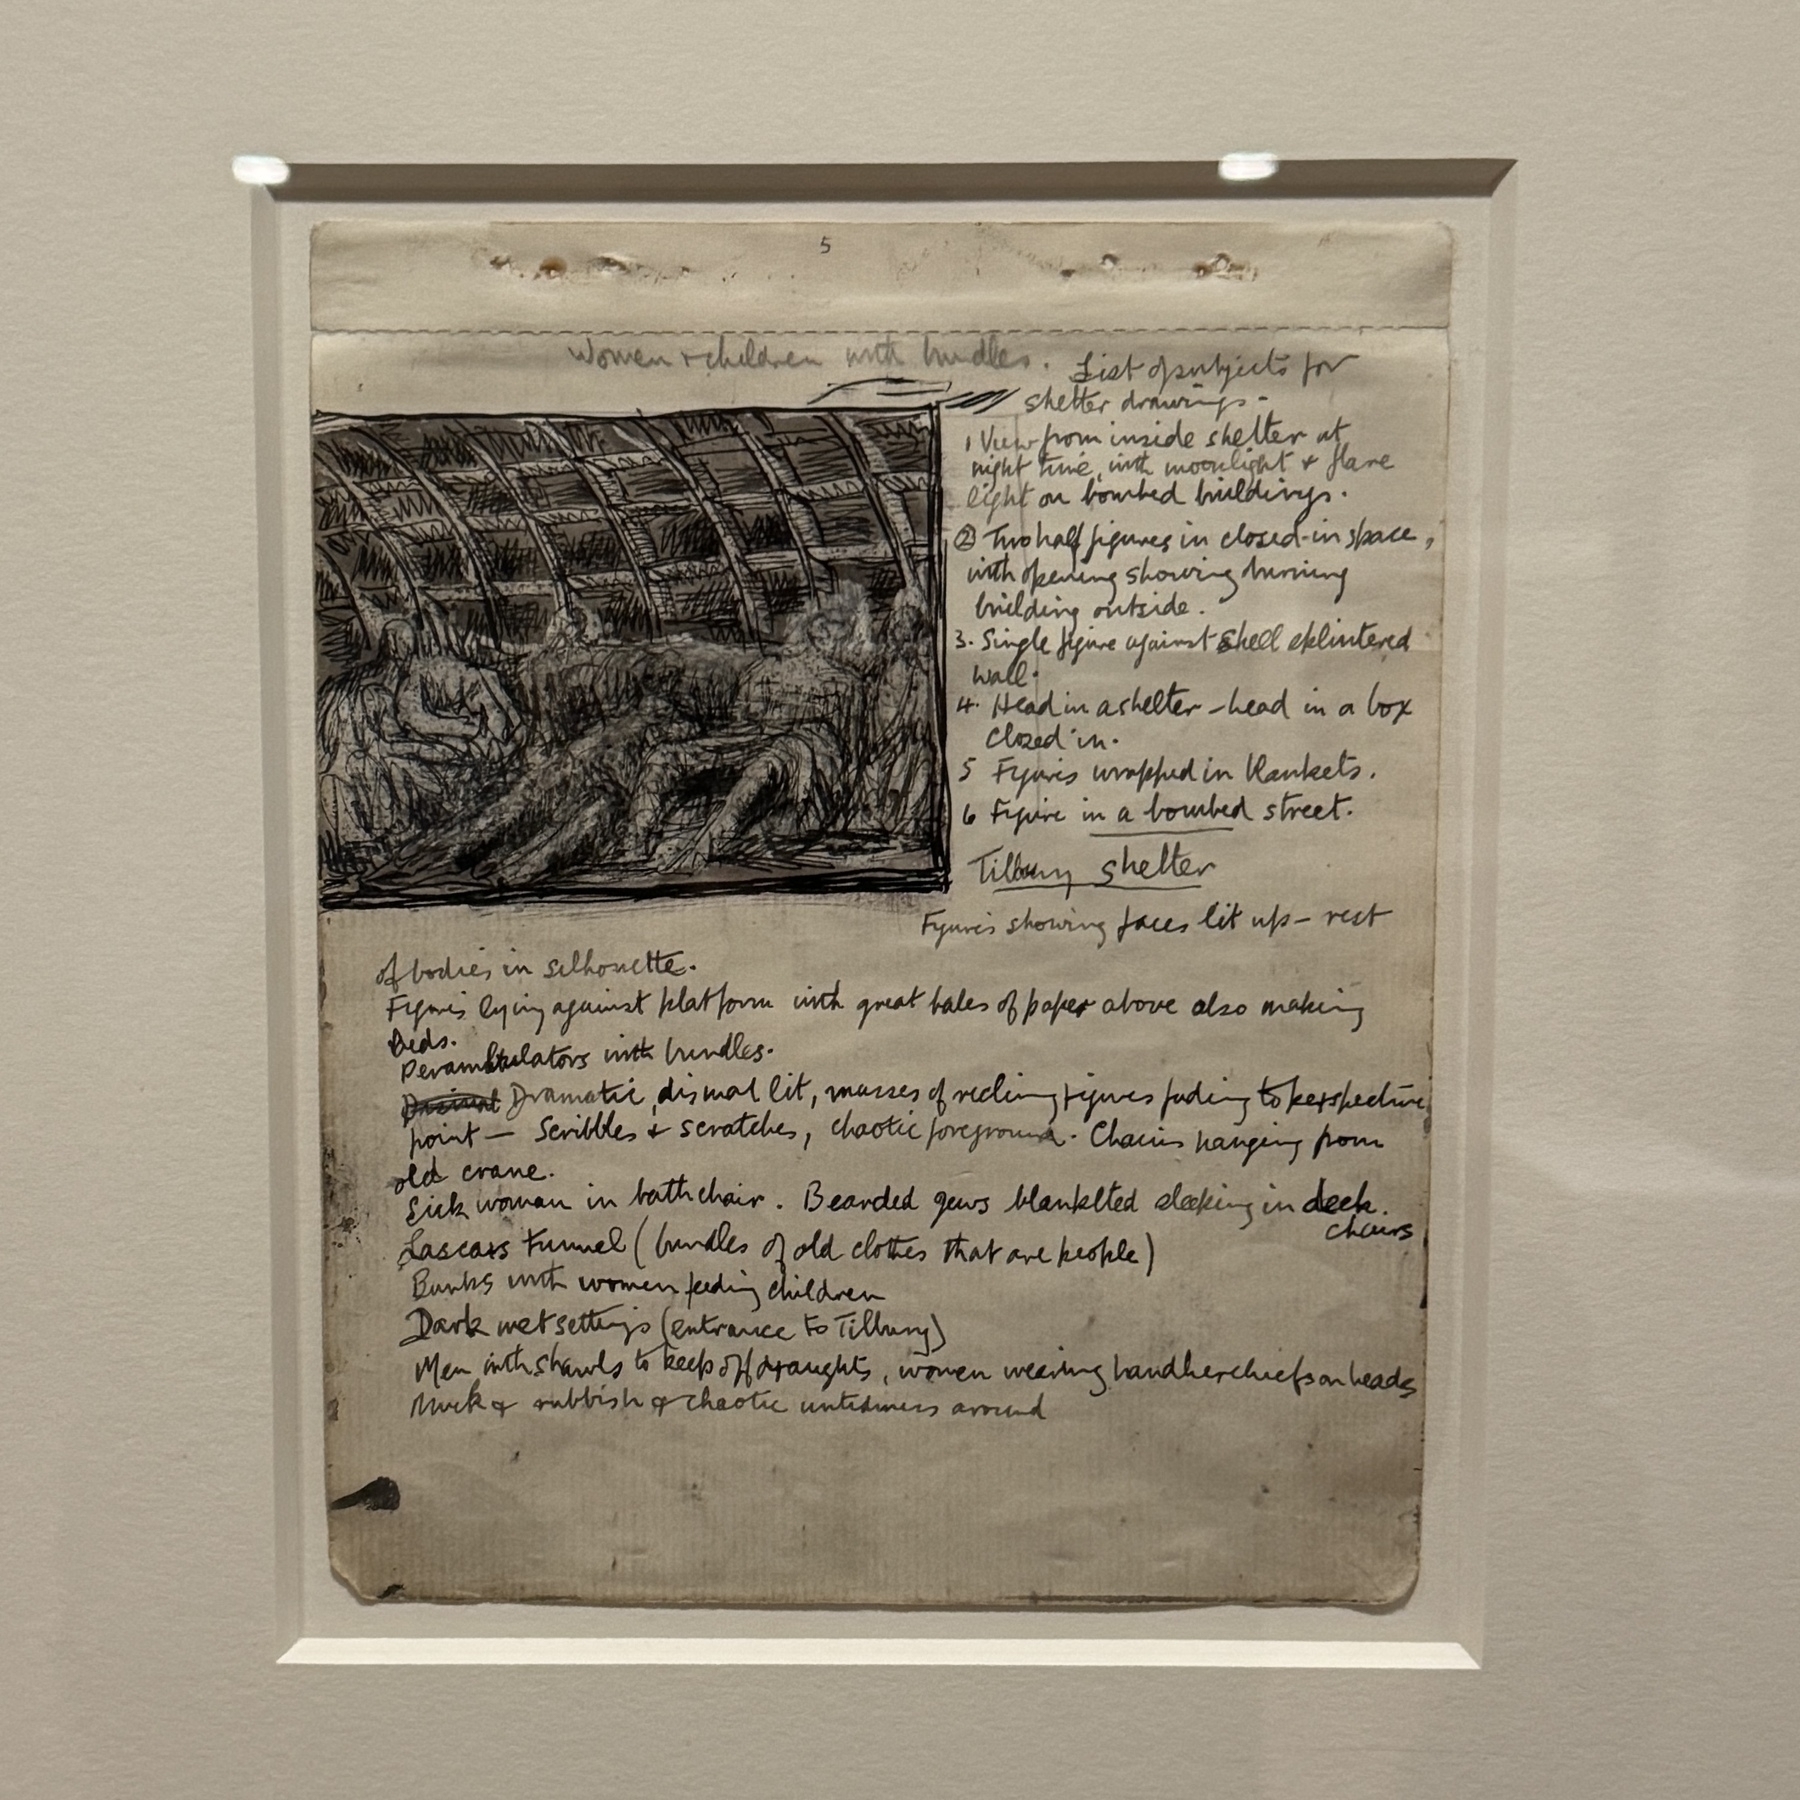 5
Women & children with bundles.
List of subjects for
shelter drawings -
1 View from inside shelter at
night time, with moonlight & flare
light on bombed buildings.
② Two half figures in closed-in space,
with opening showing burning
building outside.
3. Single figure against shell splintered
wall.
4. Head in a shelter - head in a box
closed in.
5 Figures wrapped in blankets.
6 Figure in a bombed street.
Tilbury shelter
Figures showing faces lit up - rest
of bodies in silhouette.
Figures lying against platform with great bales of paper above also making
beds.
Perambulators with bundles.
Dramatic, dismal lit, masses of reclining figures fading to perspective
point - Scribbles & scratches, chaotic foreground. Chains hanging from
old crane.
Sick woman in bathchair. Bearded Jews blanketed sleeping in deck.
chairs
Lascars Tunnel (bundles of old clothes that are people)
Bunks with women feeding children
Dark wet settings (entrance to Tilbury)
Men with shawls to keep off draughts, women wearing handkerchiefs on heads
Muck & rubbish & chaotic untidiness around